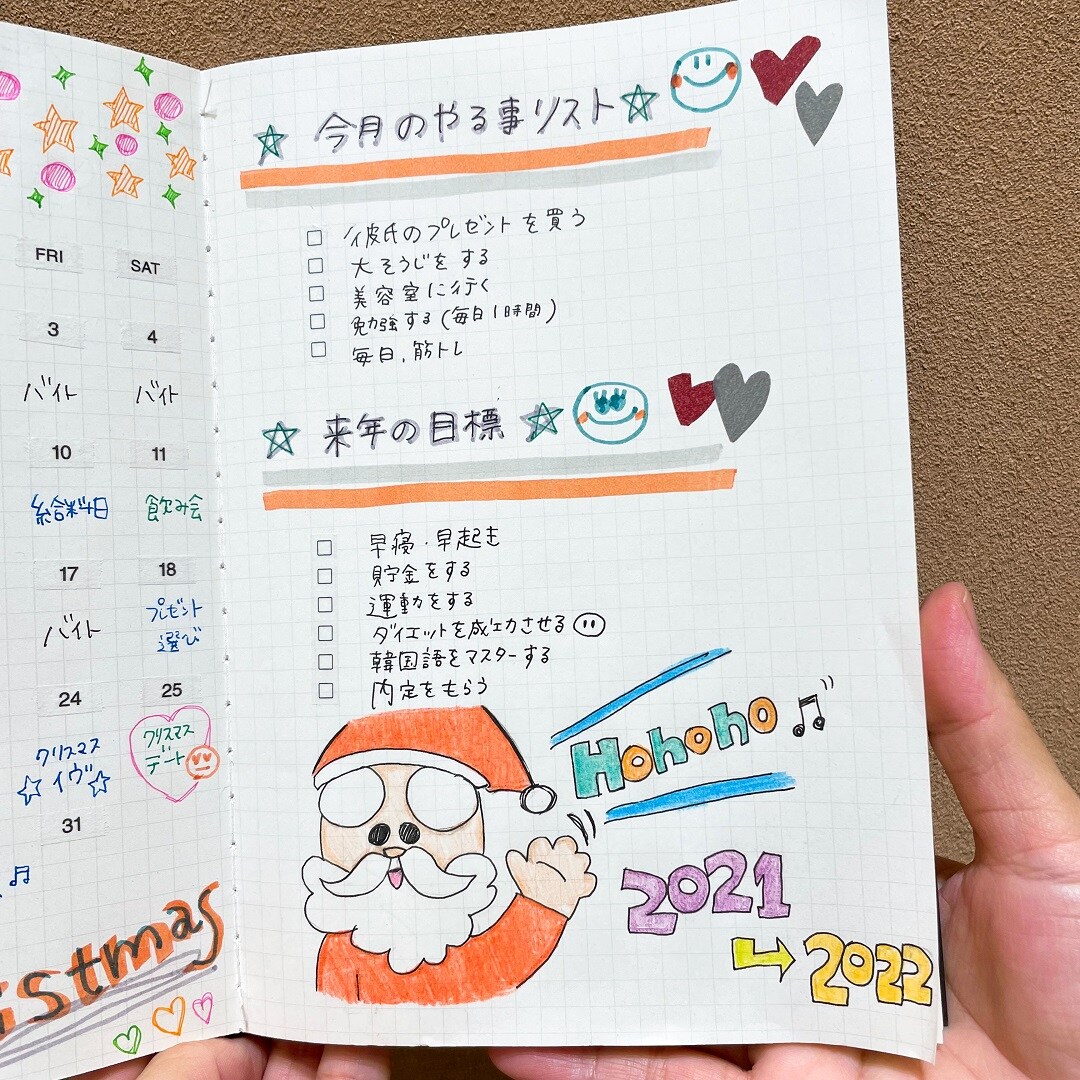 FRI SAT
3 4
バイト バイト
10 11
給料日 飲み会
17 18
バイト プレゼント
選び
24 25
クリスマス イヴ クリスマス デート
31
istmas
今月のやる事リスト
彼氏のプレゼントを買う
大そうじをする
美容室に行く
勉強する(毎日1時間)
毎日、筋トレ
来年の目標
早寝・早起き
貯金をする
運動をする
ダイエットを成功させる
韓国語をマスターする
内定をもらう
Hohoho
2021
2022